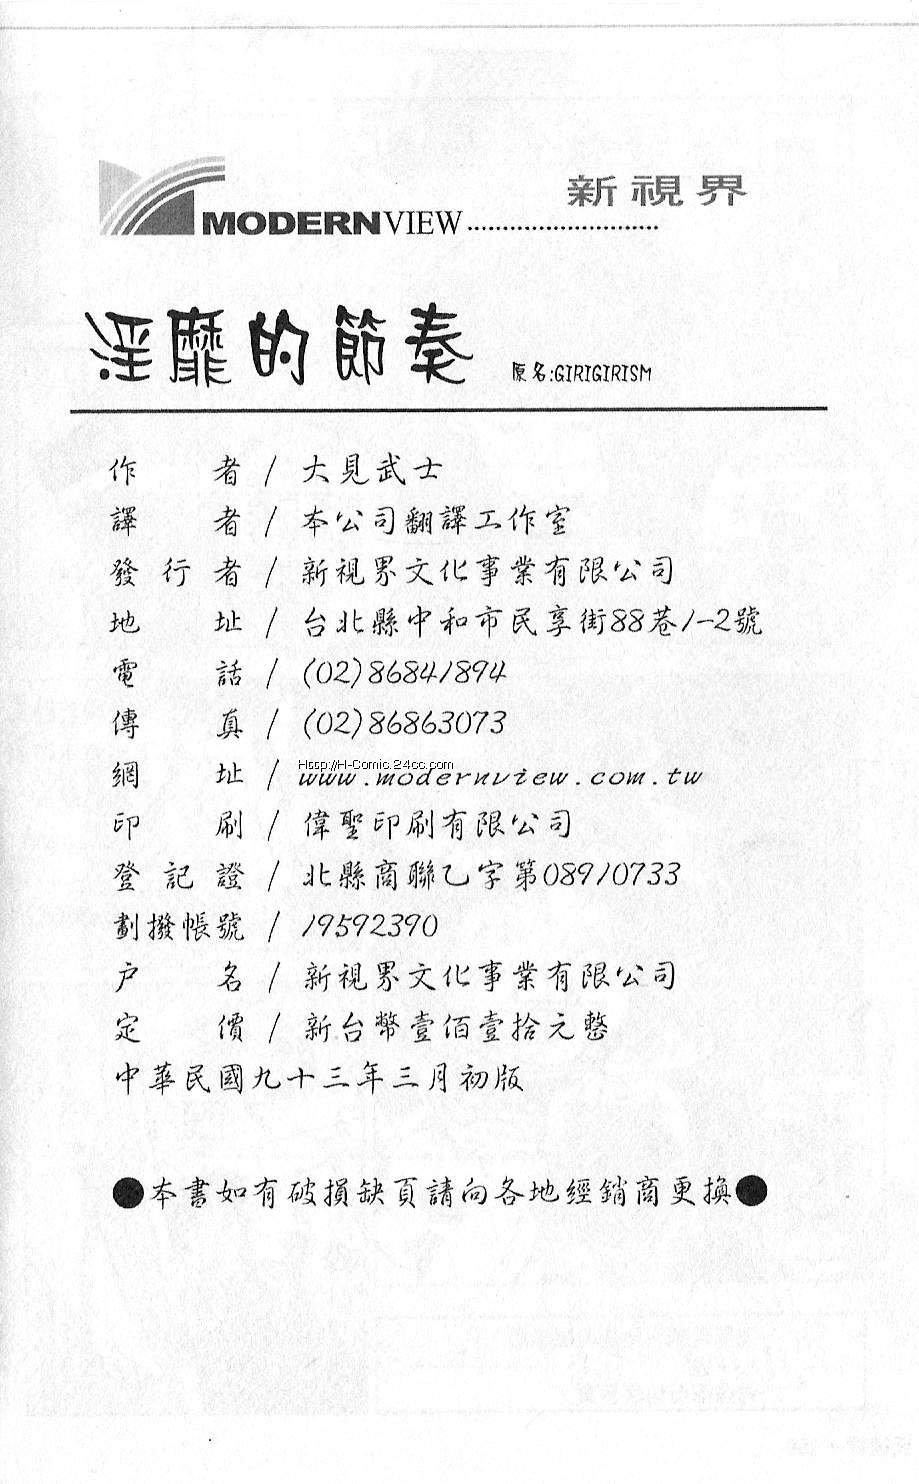 新視界
MODERNVIEW
淫靡的節奏 原名:GIRIGIRISM
作者/大見武士
譯者/本公司翻譯工作室
發行者/新視界文化事業有限公司
地址/台北縣中和市民享街88巷1-2號
電話/(02)86841894
傳真/(02)86863073
Http://H-Comic.24cc.com
網址/www.modernview.com.tw
印刷/偉聖印刷有限公司
登記證/北縣商聯乙字第08910733
劃撥帳號/19592390
戶名/新視界文化事業有限公司
定價/新台幣壹佰壹拾元整
中華民國九十三年三月初版
●本書如有破損缺頁請向各地經銷商更換●